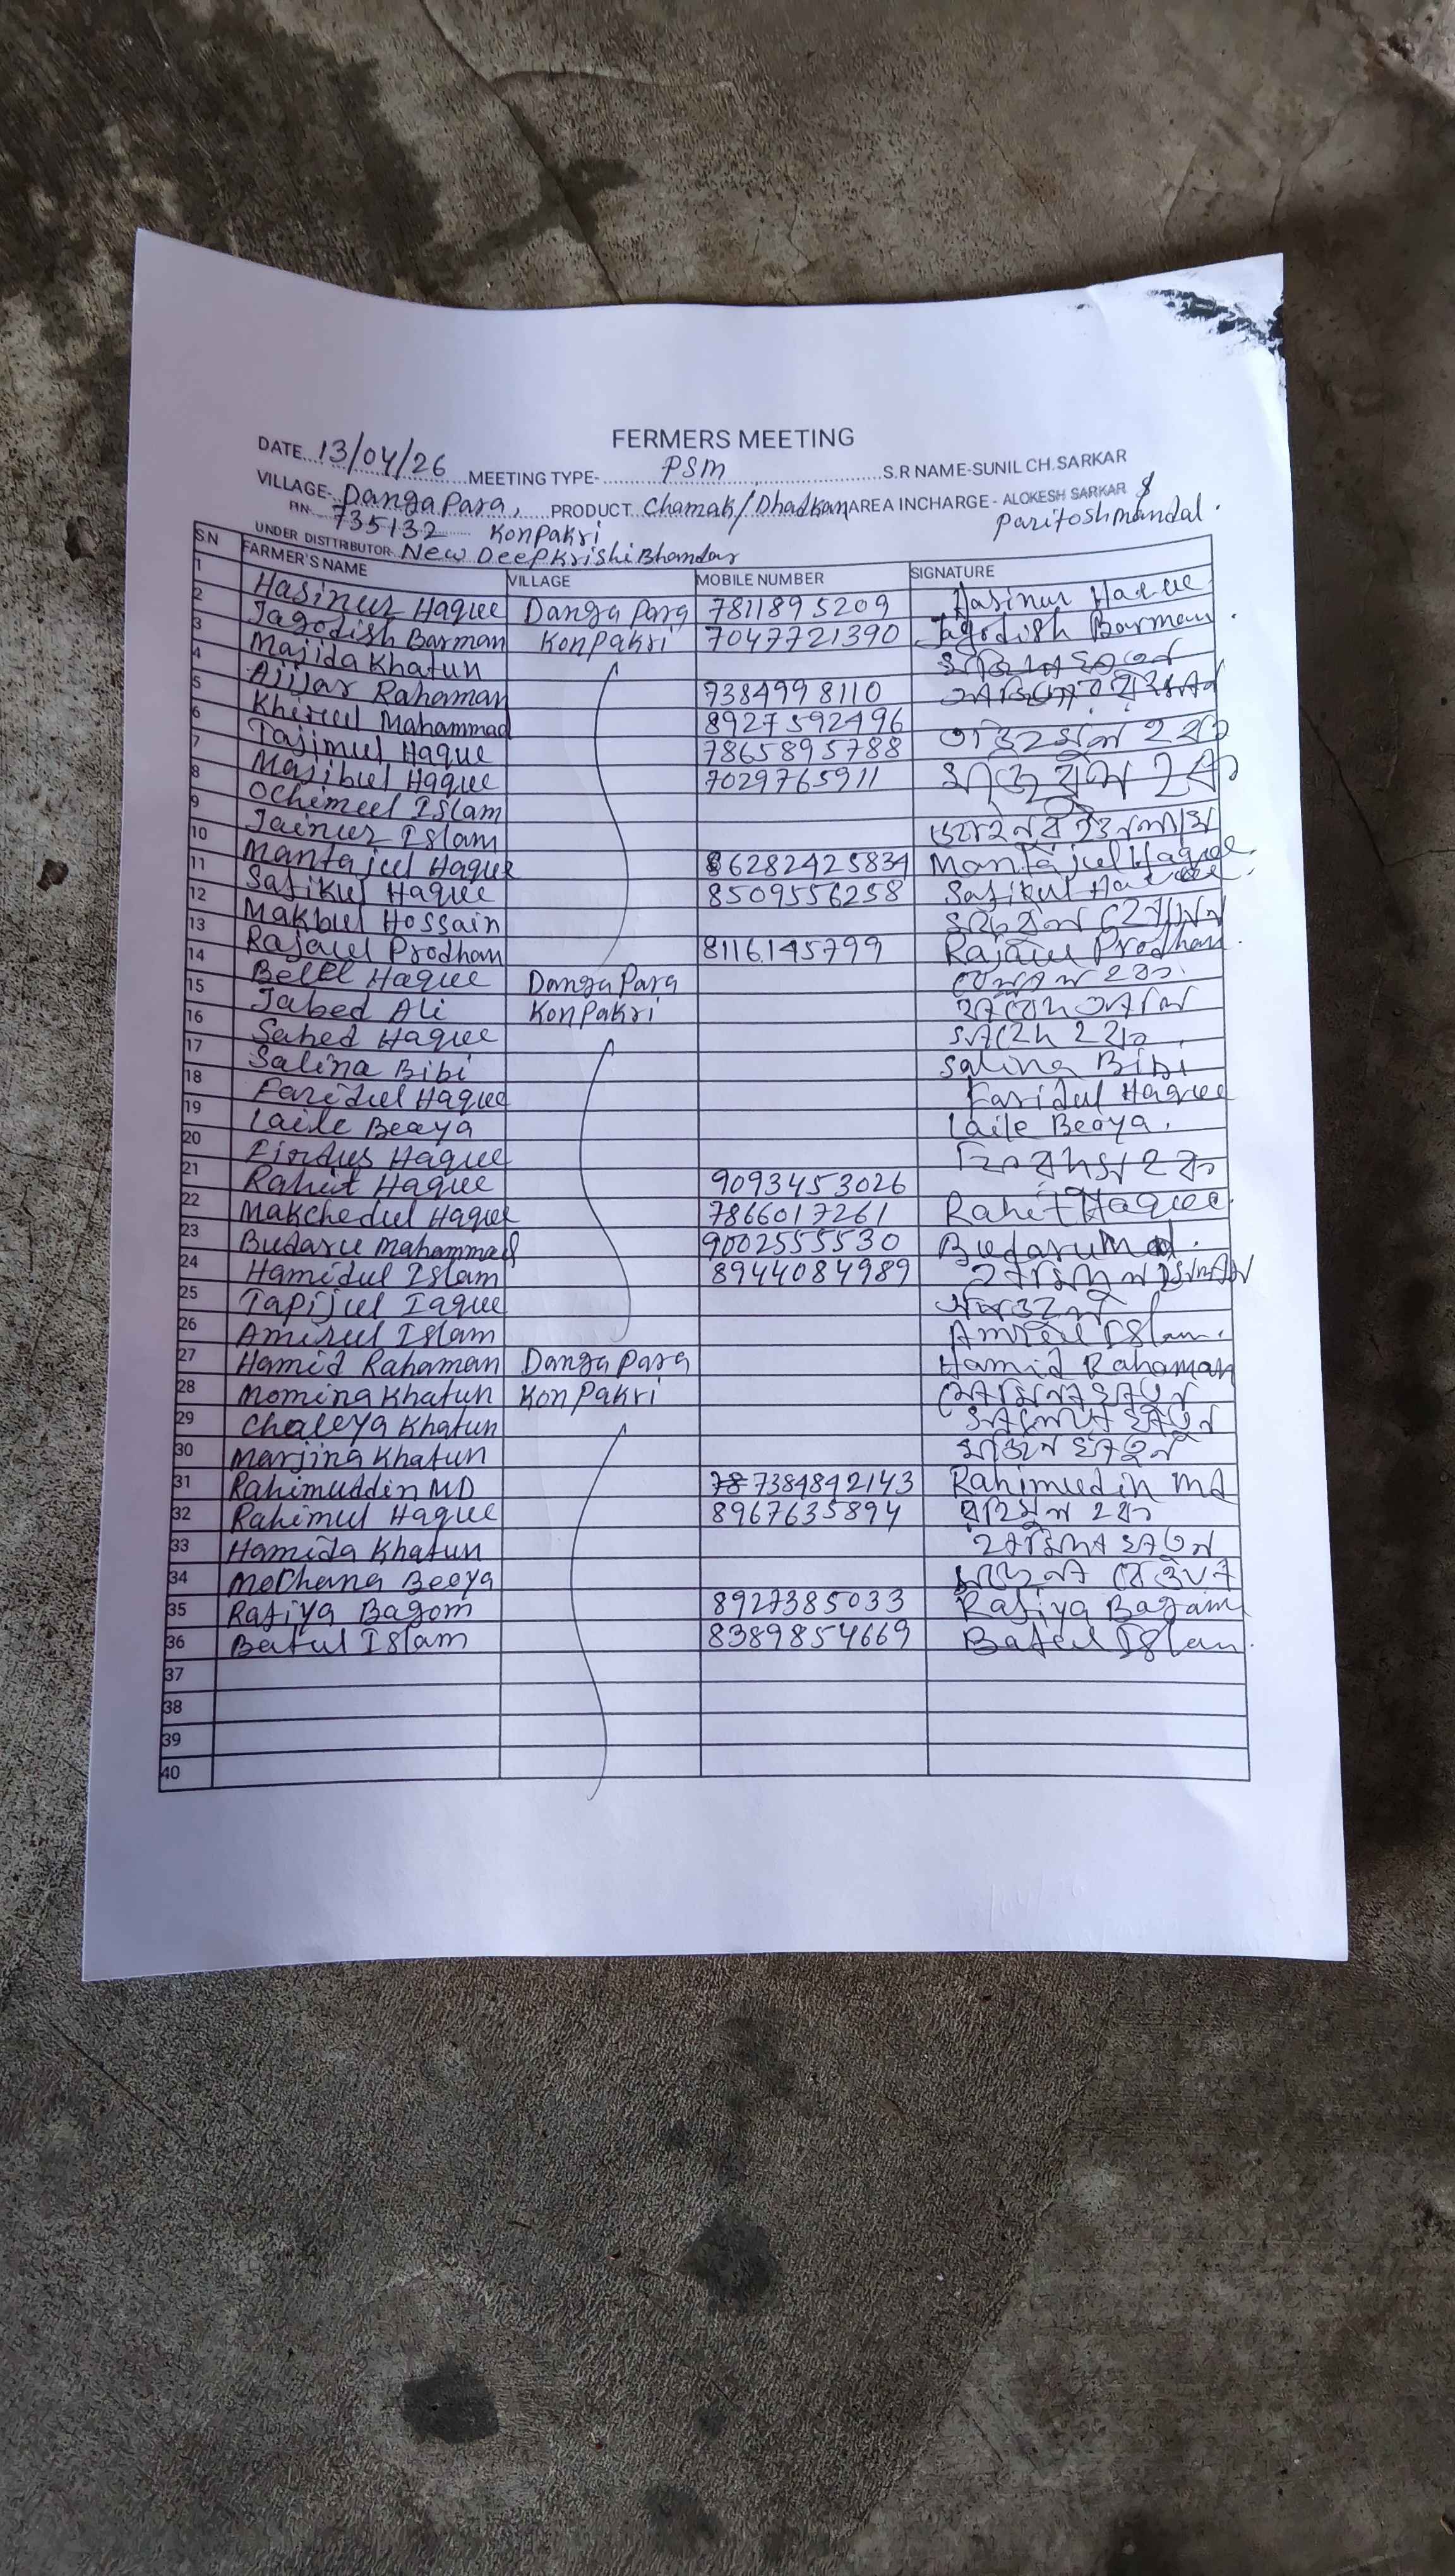 FERMERS MEETING
DATE 13/04/26 MEETING TYPE- PSM S.R NAME-SUNIL CH.SARKAR
VILLAGE- Danga Para, PRODUCT Chamak/Dhadkan AREA INCHARGE - ALOKESH SARKAR &
PIN 735132 KonPakri Paritosh mandal.
UNDER DISTTRIBUTOR- New Deep Krishi Bhandar
SN FARMER'S NAME VILLAGE MOBILE NUMBER SIGNATURE
1 Hasinur Haque Danga Para 7811895209 Hasinur Haque
2 Jagodish Barman KonPakri 7047721390 Jagodish Barman
3 Majida Khatun
4 Ajijar Rahaman 7384998110
5 Khirul Mahammad 8927592496
6 Tajimul Haque 7865895788
7 Majibul Haque 7029765911
8 Ochimul Islam
9 Jainur Islam
10 Mantajul Haque 6282425834 Mantajul Haque
11 Safikul Haque 8509556258 Safikul Haque
12 Makbul Hossain
13 Rajaul Prodhan 8116145799 Rajaul Prodhan
14 Belel Haque Danga Para
15 Jabed Ali KonPakri
16 Sahed Haque
17 Salina Bibi Salina Bibi
18 Faridul Haque Faridul Haque
19 Laile Beoya Laile Beoya
20 Firdus Haque
21 Rahit Haque 9093453026
22 Makchedul Haque 7866017261 Rahit Haque
23 Budaru Mahammad 9002555530 Budaru Md.
24 Hamidul Islam 8944084989
25 Tapijul Iaque
26 Amirul Islam Amirul Islam.
27 Hamid Rahaman Danga Para Hamid Rahaman
28 Momina Khatun KonPakri
29 Chaleya Khatun
30 Marjina Khatun
31 Rahimuddin MD 78 7384842143 Rahimuddin Md
32 Rahimul Haque 8967635894 রহিমুল হক
33 Hamida Khatun হামিদা খাতুন
34 Mochana Beoya
35 Rafiya Bagom 8927385033 Rafiya Bagam
36 Batul Islam 8389854669 Batul Islam.
37
38
39
40